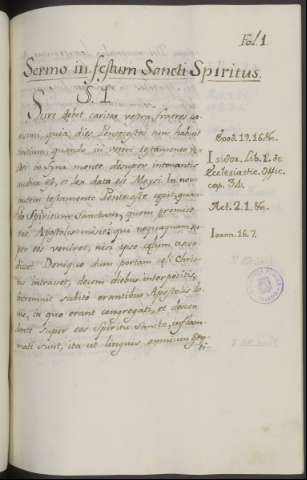 Fol. 1.
Sermo in festum Sancti Spiritus.
§. 1.
Scire debet caritas vestra, fratres ca-
rissimi, quia dies Pentecostes tum habuit
initium, quando in veteri testamento
Sina monte desuper intonantis
audita est, et lex data est Moysi. In novo
autem testamento Pentecoste cepit, quan-
do Spiritum Sanctum, quem promise-
rat, Apostolis misit; qua nequaquam su-
per eos veniret, nisi ipse cælum ascen-
disset. Denique dum portam cæli Chris-
tus intravet, decem diebus interpositis,
intonuit subito orantibus Apostolis lo-
cus, in quo erant congregati, et descen-
dente super eos Spiritu Sancto, inflam-
mati sunt, ita ut linguis omnium gen-
ti-
Exod. 19. 16. &c.
Isidor. Lib. 1. de
Ecclesiastic. Offic.
cap. 34.
Act. 2. 1. &c.
Joann. 16. 7.